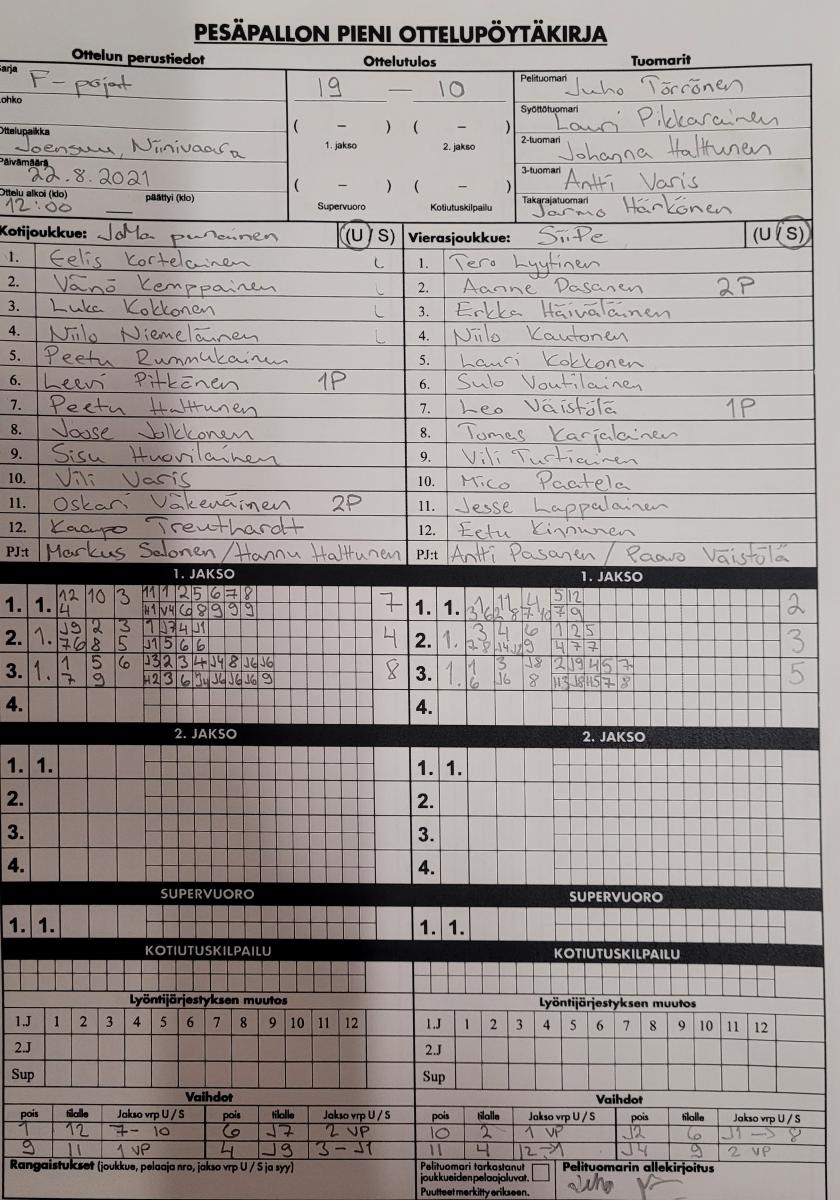 PESÄPALLON PIENI OTTELUPÖYTÄKIRJA
Ottelun perustiedot Ottelutulos Tuomarit
Sarja F-pojat
Lohko
Ottelupaikka Joensuu, Niinivaara
Päivämäärä 22.8.2021
Ottelu alkoi (klo) 12:00 päättyi (klo) —
19 — 10
( – ) ( – )
1. jakso 2. jakso
( – ) ( – )
Supervuoro Kotiutuskilpailu
Pelituomari Juho Törrönen
Syöttötuomari Lauri Pikkarainen
2-tuomari Johanna Halttunen
3-tuomari Antti Varis
Takarajatuomari Jarmo Härkönen
Kotijoukkue: JoMa punainen (U / S)
1. Eelis Kortelainen L
2. Väinö Kemppainen L
3. Luka Kokkonen L
4. Niilo Niemeläinen L
5. Peetu Runnukainen
6. Leevi Pitkänen 1P
7. Peetu Halttunen
8. Joose Jolkkonen
9. Sisu Huovilainen
10. Vili Varis
11. Oskari Väkeväinen 2P
12. Kaapo Treuthardt
PJ:t Markus Salonen / Hannu Halttunen
Vierasjoukkue: SiiPe (U / S)
1. Tero Lyytinen
2. Aarne Pasanen 2P
3. Erkka Häiväläinen
4. Niilo Kautonen
5. Lauri Kokkonen
6. Sulo Voutilainen
7. Leo Väistölä 1P
8. Tomas Karjalainen
9. Vili Turtiainen
10. Mico Paatela
11. Jesse Lappalainen
12. Eetu Kinnunen
PJ:t Antti Pasanen / Paavo Väistölä
1. JAKSO
1. 1. 12 10 3 11 1 2 5 6 7 8 7
4 H1 V4 6 8 9 9 9
2. 1. J9 2 3 1 J7 4 J1 4
7 6 8 5 J1 5 6 6
3. 1. 1 5 6 J3 2 3 4 J4 8 J6 J6 8
7 9 H2 3 6 J4 J6 J6 J6 9
4.
1. JAKSO
1. 1. 1 11 4 5 12 2
7 9
2. 1. 3 4 6 1 2 5 3
4 7 7
3. 1. 1 3 J8 2 J9 4 5 7 5
6 J6 8 H3 J8 H5 7 8
4.
2. JAKSO
1. 1.
2.
3.
4.
2. JAKSO
1. 1.
2.
3.
4.
SUPERVUORO
1. 1.
SUPERVUORO
1. 1.
KOTIUTUSKILPAILU
KOTIUTUSKILPAILU
Lyöntijärjestyksen muutos
1.J 1 2 3 4 5 6 7 8 9 10 11 12
2.J
Sup
Lyöntijärjestyksen muutos
1.J 1 2 3 4 5 6 7 8 9 10 11 12
2.J
Sup
Vaihdot
pois tilalle Jakso vrp U / S pois tilalle Jakso vrp U / S
1 12 7-10 6 J7 2 VP
9 11 1 VP 4 J9 3-J1
Vaihdot
pois tilalle Jakso vrp U / S pois tilalle Jakso vrp U / S
10 2 1 VP J2 6 J1->8
11 4 12->1 J4 9 2 VP
Rangaistukset (joukkue, pelaaja nro, jakso vrp U / S ja syy)
Pelituomari tarkastanut
joukkueiden pelaajaluvat.
Puutteet merkitty erikseen.
Pelituomarin allekirjoitus
Juho